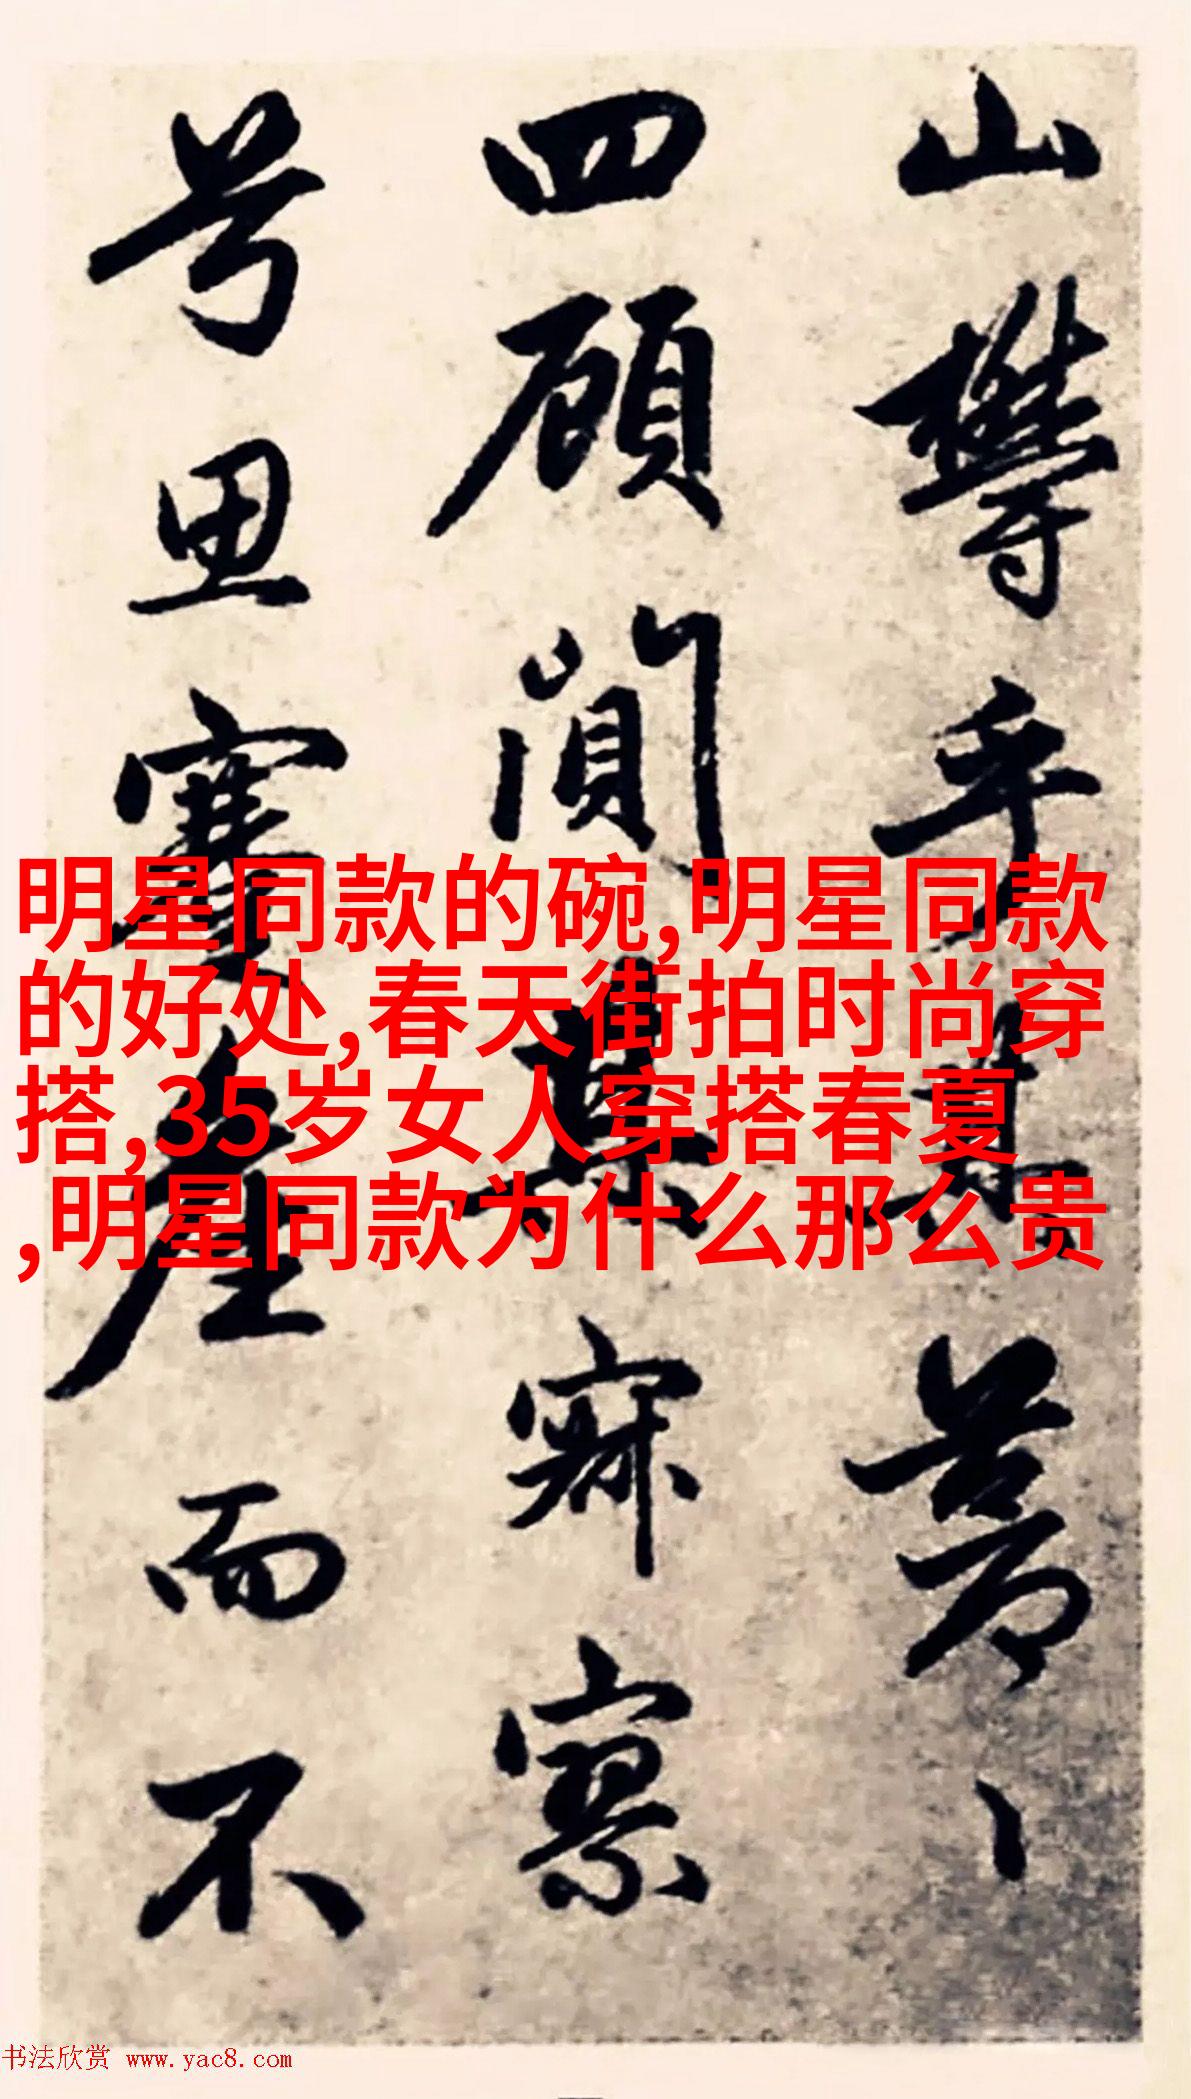 山欝乎其蒼々
四顧閴其寂寥
兮思蹇產而不
明星同款的碗,明星同款
的好处,春天街拍时尚穿
搭,35岁女人穿搭春夏
,明星同款为什么那么贵
书法欣赏 www.yac8.com